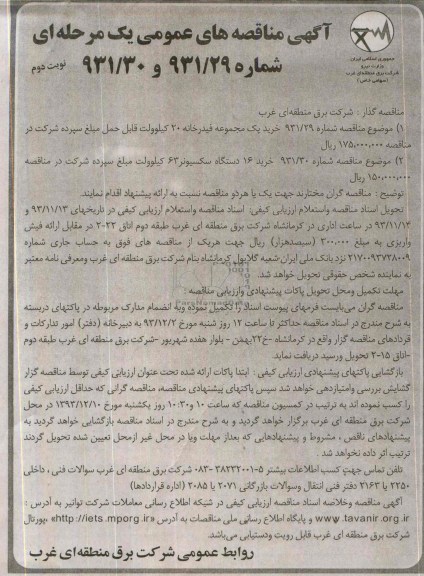 آگهی مناقصه های عمومی یک مرحله ای
شماره ۹۳۱/۲۹ و ۹۳۱/۳۰
نوبت دوم
جمهوری اسلامی ایران
وزارت نیرو
شرکت برق منطقه‌ای غرب
(سهامی خاص)
مناقصه گذار : شرکت برق منطقه‌ای غرب
۱) موضوع مناقصه شماره ۹۳۱/۲۹ خرید یک مجموعه فیدرخانه ۲۰ کیلوولت قابل حمل مبلغ سپرده شرکت در
مناقصه ۱۷۵,۰۰۰,۰۰۰ ریال
۲) موضوع مناقصه شماره ۹۳۱/۳۰ خرید ۱۶ دستگاه سکسیونر ۶۳ کیلوولت مبلغ سپرده شرکت در مناقصه
۱۵۰,۰۰۰,۰۰۰ ریال
توضیح : مناقصه گران مختارند جهت یک یا هردو مناقصه نسبت به ارائه پیشنهاد اقدام نمایند.
تحویل اسناد مناقصه واستعلام ارزیابی کیفی: اسناد مناقصه واستعلام ارزیابی کیفی در تاریخهای ۹۳/۱۱/۱۳ و
۹۳/۱۱/۱۴ در ساعت اداری در کرمانشاه شرکت برق منطقه ای غرب طبقه دوم اتاق ۲۰۲۳ در مقابل ارائه فیش
واریزی به مبلغ ۳۰۰,۰۰۰ (سیصدهزار) ریال جهت هریک از مناقصه های فوق به حساب جاری شماره
۲۱۷۰۰۹۳۷۲۸۰۰۹ نزد بانک ملی ایران شعبه گلایول کرمانشاه بنام شرکت برق منطقه ای غرب ومعرفی نامه معتبر
به نماینده شخص حقوقی تحویل خواهد شد.
مهلت تکمیل ومحل تحویل پاکات پیشنهادی وارزیابی مناقصه :
مناقصه گران می‌بایست فرمهای پیوست اسناد را تکمیل نموده وبه انضمام مدارک مربوطه در پاکتهای دربسته
به شرح مندرج در اسناد مناقصه حداکثر تا ساعت ۱۲ روز شنبه مورخ ۹۳/۱۲/۲ به دبیرخانه (دفتر) امور تدارکات و
قراردادهای مناقصه گزار واقع در کرمانشاه -خ۲۲بهمن - بلوار هفده شهریور -شرکت برق منطقه ای غرب طبقه دوم
-اتاق ۲۰۱۵ تحویل ورسید دریافت نماید.
بازگشایی پاکتهای پیشنهادی ارزیابی کیفی : ابتدا پاکات ارائه شده تحت عنوان ارزیابی کیفی توسط مناقصه گزار
گشایش بررسی وامتیازدهی خواهد شد سپس پاکتهای پیشنهادی مناقصه، مناقصه گرانی که حداقل ارزیابی کیفی
را کسب نموده اند به ترتیب در کمسیون مناقصه که ساعت ۱۰ و ۱۰:۳۰ روز یکشنبه مورخ ۱۳۹۳/۱۲/۱۰ در محل
شرکت برق منطقه ای غرب برگزار خواهد گردید و به شرح مندرج در اسناد مناقصه بازگشایی خواهد گردید به
پیشنهادهای ناقص ، مشروط و پیشنهادهایی که بعداز مهلت ویا در محل غیر ازمحل تعیین شده تحویل گردند
ترتیب اثر داده نخواهد شد.
تلفن تماس جهت کسب اطلاعات بیشتر ۵-۳۸۲۲۲۰۰۱-۰۸۳ شرکت برق منطقه ای غرب سوالات فنی ، داخلی
۲۲۵۰ یا ۲۱۶۳ دفتر فنی انتقال وسوالات بازرگانی ۲۰۷۱ یا ۲۰۸۵ (اداره قراردادها)
آگهی مناقصه وخلاصه اسناد مناقصه ارزیابی کیفی در شبکه اطلاع رسانی معاملات شرکت توانیر به آدرس :
www.tavanir.org.ir و پایگاه اطلاع رسانی ملی مناقصات به آدرس «http://iets.mporg.ir» ،پورتال
شرکت برق منطقه ای غرب قابل رویت ودستیابی می‌باشد.
روابط عمومی شرکت برق منطقه‌ای غرب